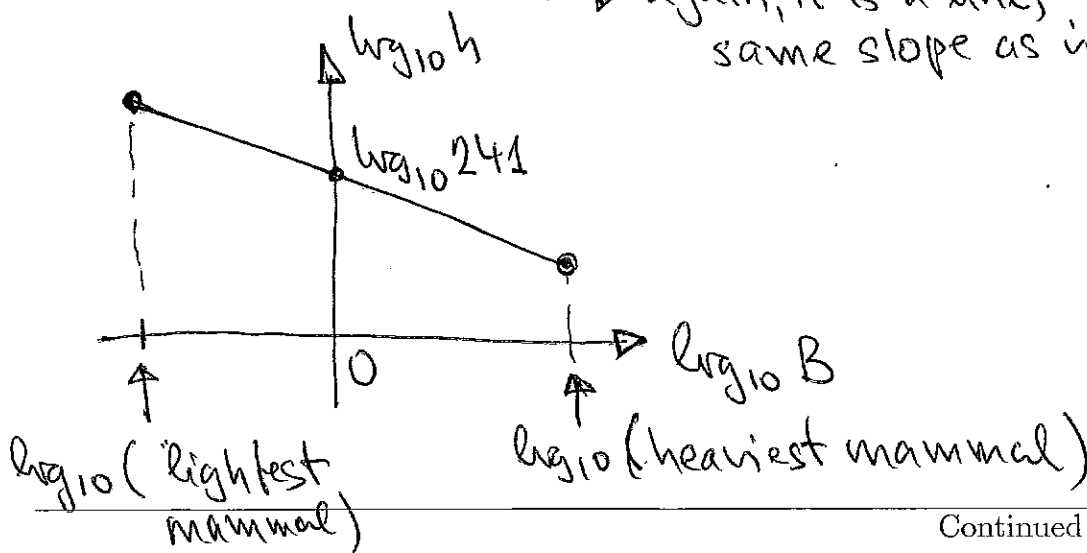 again, it is a line,
same slope as in
log₁₀ h
log₁₀ 241
0
log₁₀ B
log₁₀ (lightest mammal)
log₁₀ (heaviest mammal)
Continued